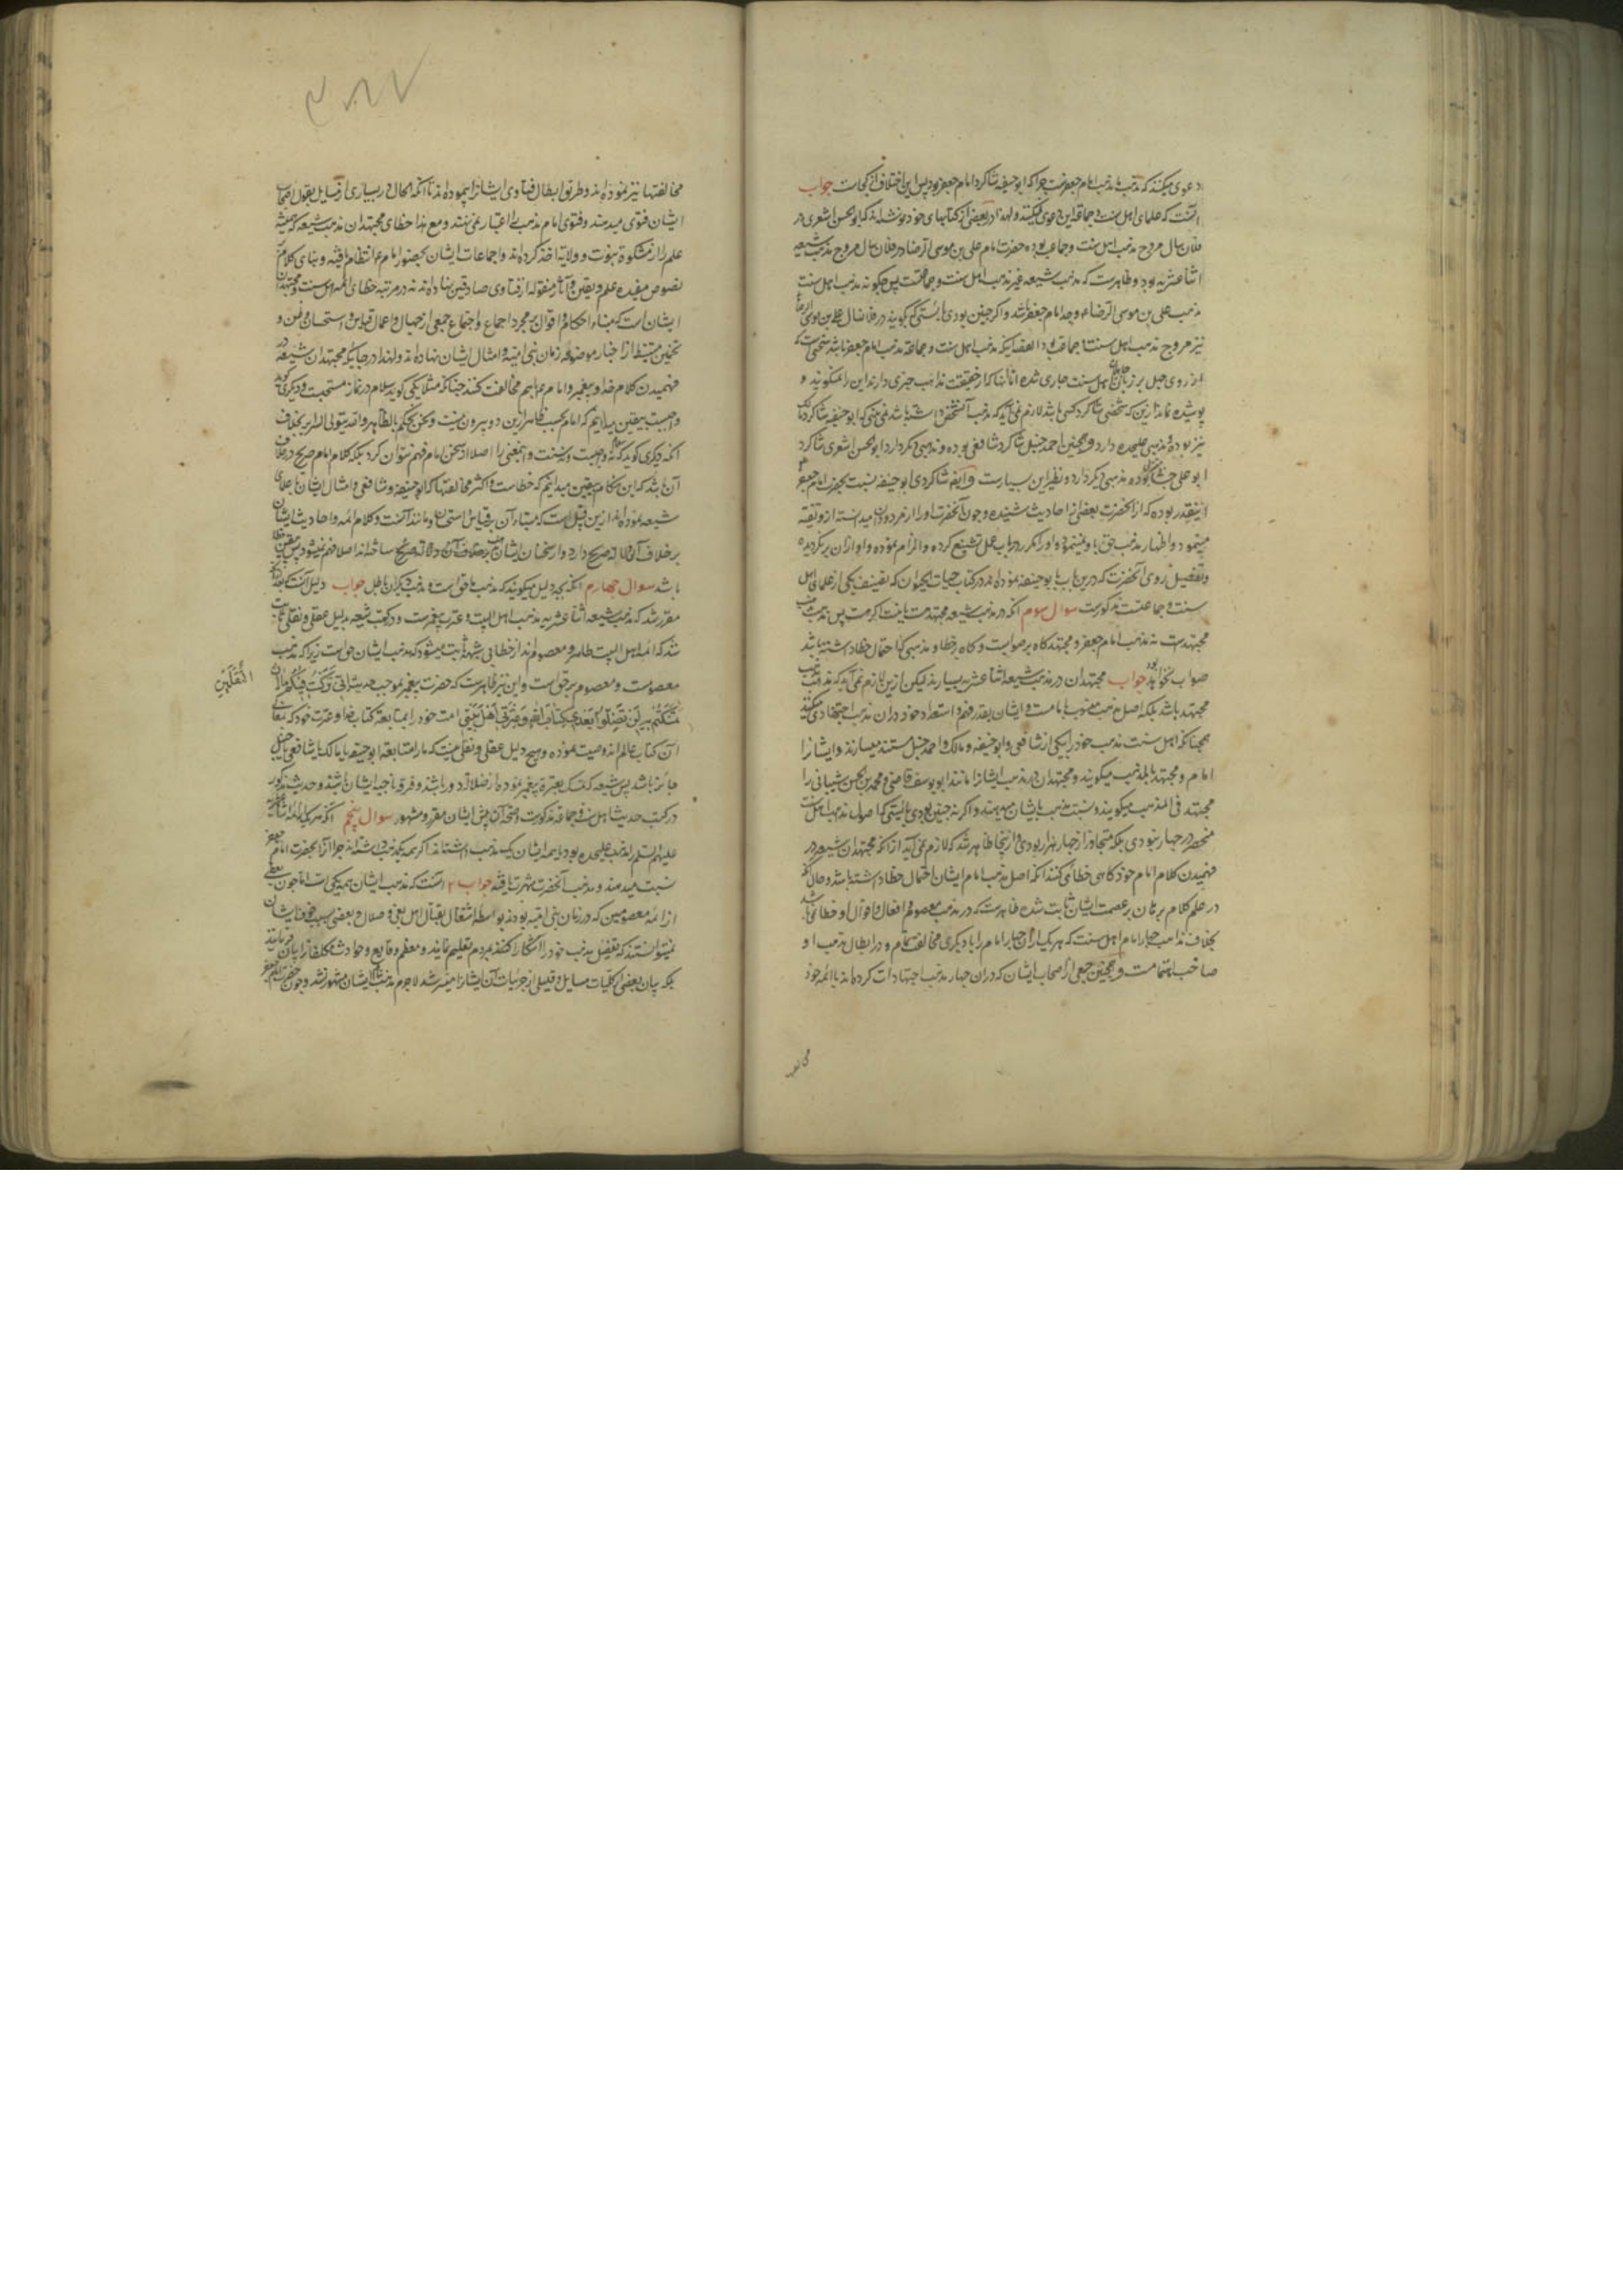 دعوی میکنند که مذهب ما مذهب امام جعفرست چرا که ابو حنیفه شاکرد امام جعفر بود پس این اختلاف از کجاست جواب
آنست که علمای اهل سنت و جماعة این دعوی نمیکنند ولهذا در بعضی از کتابهای خود نوشته اند که ابو الحسن اشعری در
فلان سال مروج مذهب اهل سنت و جماعت بوده و حضرت امام علی بن موسی الرضا در فلان سال مروج مذهب شیعه
اثنا عشریه بود و ظاهرست که مذهب شیعه غیر مذهب اهل سنت و جماعتست پس چکونه مذهب اهل سنت
مذهب علی بن موسی الرضاء و جد امام جعفر باشد و اکر چنین بودی بایستی که کویند در فلان سال علی بن موسی الرضا
نیز مروج مذهب اهل سنت و جماعة بود القصه اینکه مذهب اهل سنت و جماعة مذهب امام جعفر باشد سخنی است که
از روی جهل بر زبان اهل سنت جاری شده اما آنها که از حقیقت مذاهب خبری دارند این را نمیکویند و
پوشیده نماند ازین که شخصی شاکرد کسی باشد لازم نمی آید که مذهب آنشخص داشته باشد نمی بینی که ابو حنیفه شاکرد مالک
نیز بوده و مذهبی علیحده دارد و همچنین احمد حنبل شاکرد شافعی بوده و مذهبی دیکر دارد و ابو الحسن اشعری شاکرد
ابو علی جبائی بوده و مذهبی دیکر دارد و نظیر این بسیارست و ایضا شاکردی ابو حنیفه نسبت بحضرت امام جعفر
اینقدر بوده که از آنحضرت بعضی از احادیث شنیده و چون آنحضرت او را از مردودان میدانسته ازو تقیه
مینمود و اظهار مذهب حق باو نمینمود و او را مکرر در باب عمل تشنیع کرده و الزام نموده و او ازان برنکردیده
و تفصیل روی آنحضرت که درین باب با ابو حنیفه نموده اند در کتاب حیات الحیوان که تصنیف یکی از علمای اهل
سنت و جماعتست مذکورست سوال سوم آنکه در مذهب شیعه مجتهد هست یا نیست اکر هست پس مذهب مذهب
مجتهدست نه مذهب امام جعفر و مجتهد کاه بر صوابست و کاه بر خطا و مذهبی که احتمال خطا داشته باشد
صواب نخواهد بود جواب مجتهدان در مذهب شیعه اثنا عشریه بسیارند لیکن ازین لازم نمی آید که مذهب مذهب
مجتهد باشد بلکه اصل مذهب منسوب بامامست و ایشان بقدر فهم و استعداد خود دران مذهب اجتهادی میکنند
همچنانکه اهل سنت مذهب خود را بیکی از شافعی و ابو حنیفه و مالک و احمد حنبل مستند میسازند و ایشانرا
امام و مجتهد با المذهب میکویند و مجتهدان در مذهب ایشانرا مانند ابو یوسف قاضی و محمد بن الحسن شیبانی را
مجتهد فی المذهب میکویند و نسبت مذهب بایشان نمیدهند و اکر نه چنین بودی بایستی که اصول مذهب اهل سنت
منحصر در چهار نبودی بلکه متجاوز از چهار هزار بودی و از اینجا ظاهر شد که لازم نمی آید از آنکه مجتهدان شیعه در
فهمیدن کلام امام خود کاهی خطائی کنند آنکه اصل مذهب امام ایشان احتمال خطا داشته باشد و حال آنکه
در علم کلام برهان بر عصمت ایشان ثابت شده ظاهرست که در مذهب معصوم و افعال و اقوال او خطا نمی باشد
بخلاف مذاهب چهار امام اهل سنت که هر یک ازان چهار امام را با دیکری مخالفت تمام و در ابطال مذهب او
صاحب اهتمامست و همچنین جمعی از اصحاب ایشان که دران چهار مذهب اجتهادات کرده اند با ائمه خود
مخالفتها
مخالفتها نیز نموده اند و طریق ابطال فتاوی ایشانرا پیموده اند تا آنکه الحال در بسیاری از مسایل بقول اصحاب
ایشان فتوی میدهند و فتوی امام مذهب را اعتبار نمی نهند و مع هذا خطای مجتهدان مذهب شیعه که همیشه
علم را از مشکوة نبوت و ولایة اخذ کرده اند و اجماعات ایشان بحضور امام ع انتظام یافته و بنای کلام
نصوص مفیده علم و یقین و آثار منقوله از فتاوی صادقین نهاده اند نه در مرتبه خطای ائمه اهل سنت و مجتهدان
ایشان است که بناء احکام و اقوال بر مجرد اجماع و اجتماع جمعی از جهال و اعمال قیاس و استحسان و ظن و
تخمین مستنبط از اخبار موضوعه زمان بنی امیه و امثال ایشان نهاده اند ولهذا در جاییکه مجتهدان شیعه در
فهمیدن کلام خدا و پیغمبر و امام ع با هم مخالفت کنند چنانکه مثلا یکی کوید سلام در نماز مستحبست و دیکری کوید
واجبست بیقین میدانیم که امام بحسب ظاهر ازین دو بیرون نیست و نحن نحکم بالظاهر و الله یتولی السرایر بخلاف
آنکه دیکری کوید که نه واجبست و نه سنت و اینمعنی را اصلا از سخن امام فهم نتوان کرد بلکه کلام امام صریح در خلاف
آن باشد که این هنکام بیقین میدانیم که خطاست و اکثر مخالفتها که ابو حنیفه و شافعی و امثال ایشان با علمای
شیعه نموده اند ازین قبیل است که مبناء آن بر قیاس و استحسان و مانند آنست و کلام ائمه و احادیث ایشان
بر خلاف آن دلالة صریح دارد و از سخنان ایشان که بخلاف آن دلالة صریح ساخته اند اصلا فهم نمیشود پس بیقین خطا
باشد سوال چهارم آنکه بچه دلیل میکویند که مذهب ما حق است و مذهب دیکران باطل جواب دلیل آنست که
مقرر شد که مذهب شیعه اثنا عشریه مذهب اهل البیت و عترت پیغمبرست و در کتب شیعه بدلیل عقلی و نقلی ثابت
شد که ائمه اهل البیت طاهر و معصوم اند از خطا بی شبهه ثابت میشود که مذهب ایشان حق است زیرا که مذهب
معصومست و معصوم بر حق است و این نیز ظاهرست که حضرت پیغمبر بموجب حدیث اِنّی تَرَکتُ فیکُم
الثَّقَلَینِ
تَمَسَّکتُم بِهِ لَن تَضِلّوا بَعدی کِتابَ اللهِ وَ عِترَتی اَهلَ بَیتی امت خود را بمتابعة کتاب خدا و عترت خود که
آن کتاب عالم اند وصیت نموده و هیچ دلیل عقلی و نقلی نیست که ما را متابعة ابو حنیفه یا مالک یا شافعی یا حنبل
جائز باشد پس شیعه که تمسک بعترة پیغمبر نموده از ضلالة دور باشند و فرقه ناجیه ایشان باشند و حدیث مذکور
در کتب حدیث اهل سنت و جماعة مذکورست و صحة آن پیش ایشان مقرر و مشهور سوال پنجم آنکه هر یک از ائمه
علیهم السلم را مذهب علیحده بود یا همه ایشان یک مذهب داشته اند اکر همه یک مذهب داشته اند چرا آنرا بحضرت امام جعفر
نسبت میدهند و مذهب آنحضرت شهرت یافته جواب آنست که مذهب ایشان همه یکی است اما چون بعضی
از ائمه معصومین که در زمان بنی امیه بودند بواسطه اشتغال بقتال اهل بغی و ضلال و بعضی بسبب خوف ایشان
نمیتوانستند که تفصیل مذهب خود را آشکارا کنند و مردم تعلیم نمایند و معظم وقایع و حوادث مکلفانرا بیان فرمایند
بلکه بیان بعضی از کلیات مسایل و قلیلی از جزئیات آن ایشانرا میسر شد لاجرم مذهب بایشان مشهور نشد و چون حضرت امام جعفر